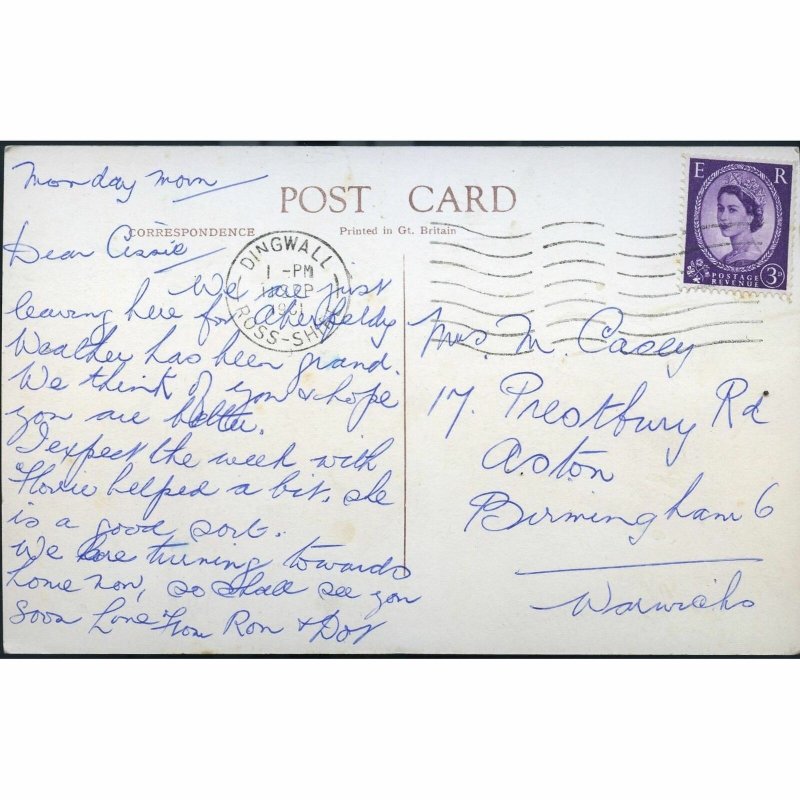 Monday Morn
POST CARD
CORRESPONDENCE
Printed in Gt. Britain
Dear Cissie
We are just
leaving here for Aberfeldy
Weather has been grand.
We think of you & hope
you are better.
I expect the week with
helped a bit, she
is a good sort.
We are turning towards
home now, so shall see you
soon Love from Ron & Dot
DINGWALL
1 - PM
SEP
ROSS-SHIRE
E R
POSTAGE
REVENUE
3D
Mrs. M. Casey
17, Prestbury Rd
Aston
Birmingham 6
Warwicks